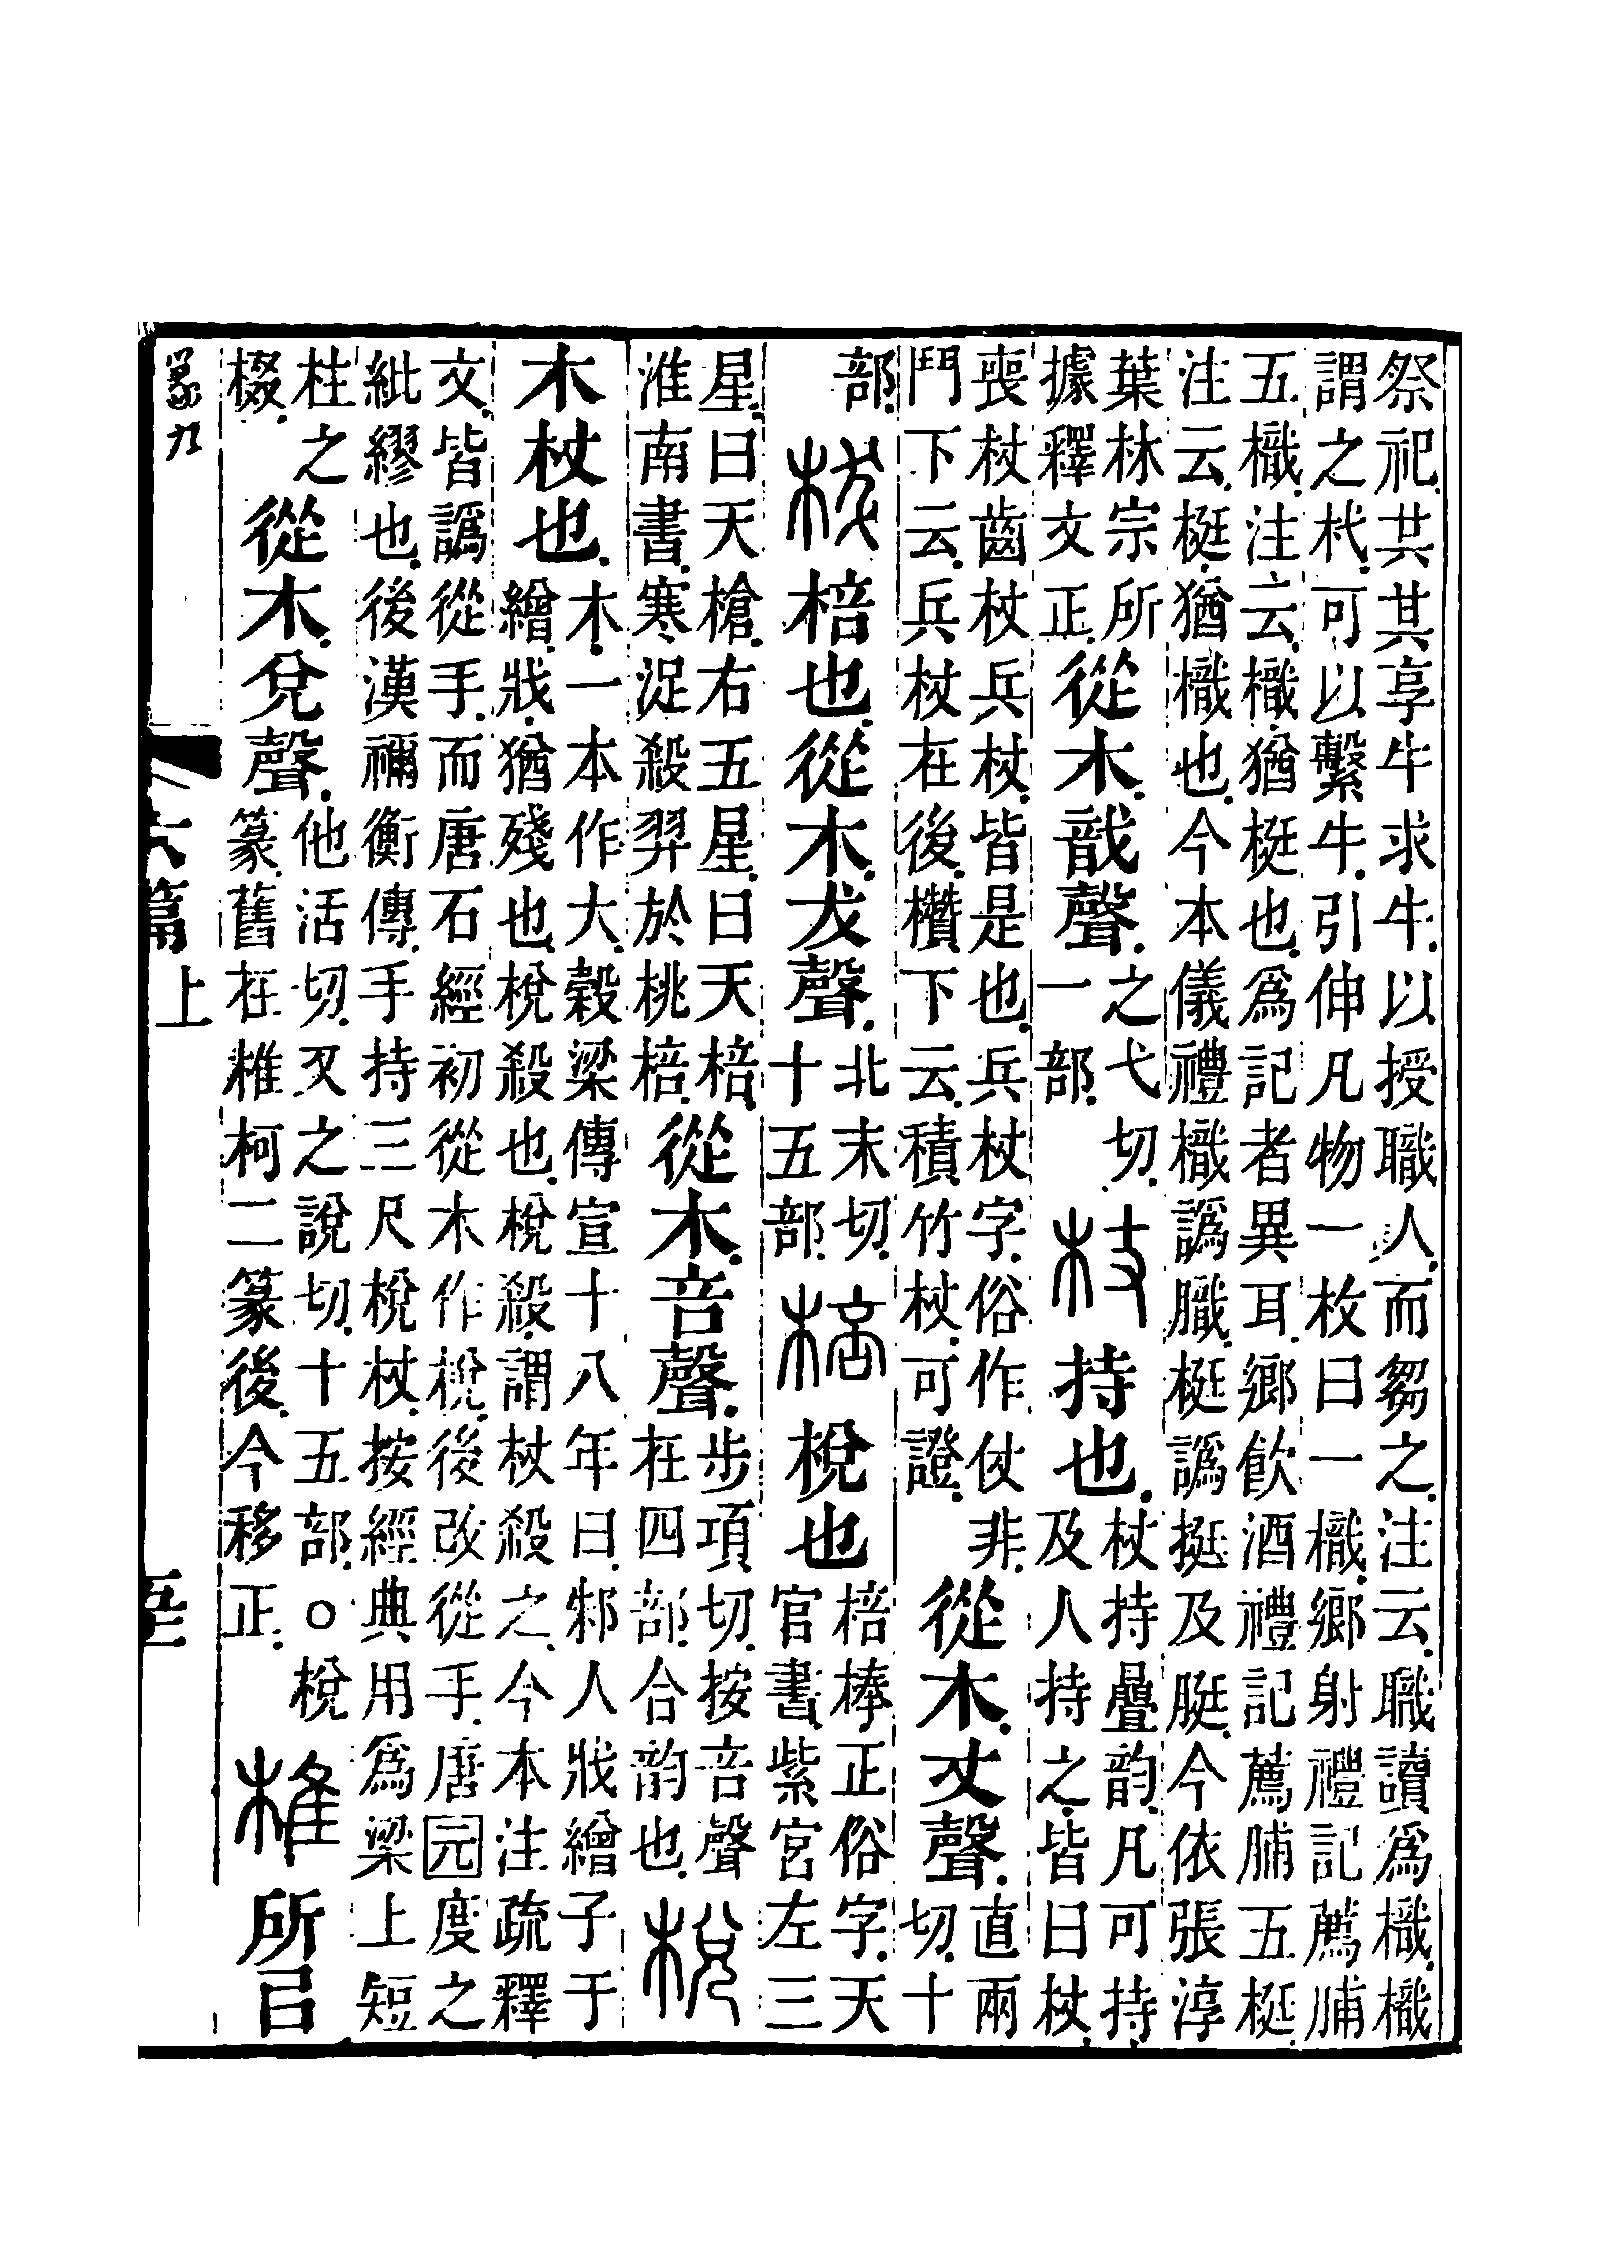 祭祀共其享牛求牛以授職人而芻之注云職讀爲樴樴
謂之杙可以繫牛引伸凡物一枚曰一樴鄉射禮記薦脯
五樴注云樴猶梃也爲記者異耳鄉飲酒禮記薦脯五梃
注云梃猶樴也今本儀禮樴譌膱梃譌挺及脡今依張淳
葉林宗所
據釋文正
從木戠聲
之弋切
一部
杖
持也
杖持曡韵凡可持
及人持之皆曰杖
喪杖齒杖兵杖皆是也兵杖字俗作仗非
鬥下云兵杖在後欑下云積竹杖可證
從木丈聲
直兩
切十
部
柭
棓也從木犮聲
北末切
十五部
棓
梲也
棓棒正俗字天
官書紫宮左三
星曰天槍右五星曰天棓
淮南書寒浞殺羿於桃棓
從木咅聲
步項切按咅聲
在四部合韵也
梲
木杖也
木一本作大榖梁傳宣十八年曰邾人戕繒子于
繒戕猶殘也梲殺也梲殺謂杖殺之今本注疏釋
文皆譌從手而唐石經初從木作梲後改從手唐元度之
紕繆也後漢禰衡傳手持三尺梲杖按經典用爲梁上短
柱之
棳
從木兌聲
他活切又之說切十五部○梲
篆舊在椎柯二篆後今移正
椎
所㠯
篆九
六篇上